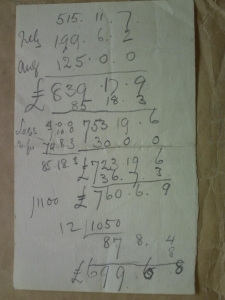 515. 11. 7
Feb 199. 6. 2
Aug 125. 0. 0
£ 839. 17. 9
85 18. 3
Less 753 19. 6
30. 0. 0
85.18.3 £ 723. 19 6
36. 7 3
£ 760. 6. 9
1100
12 1050
87 8. 4
8
£ 699. 6 8